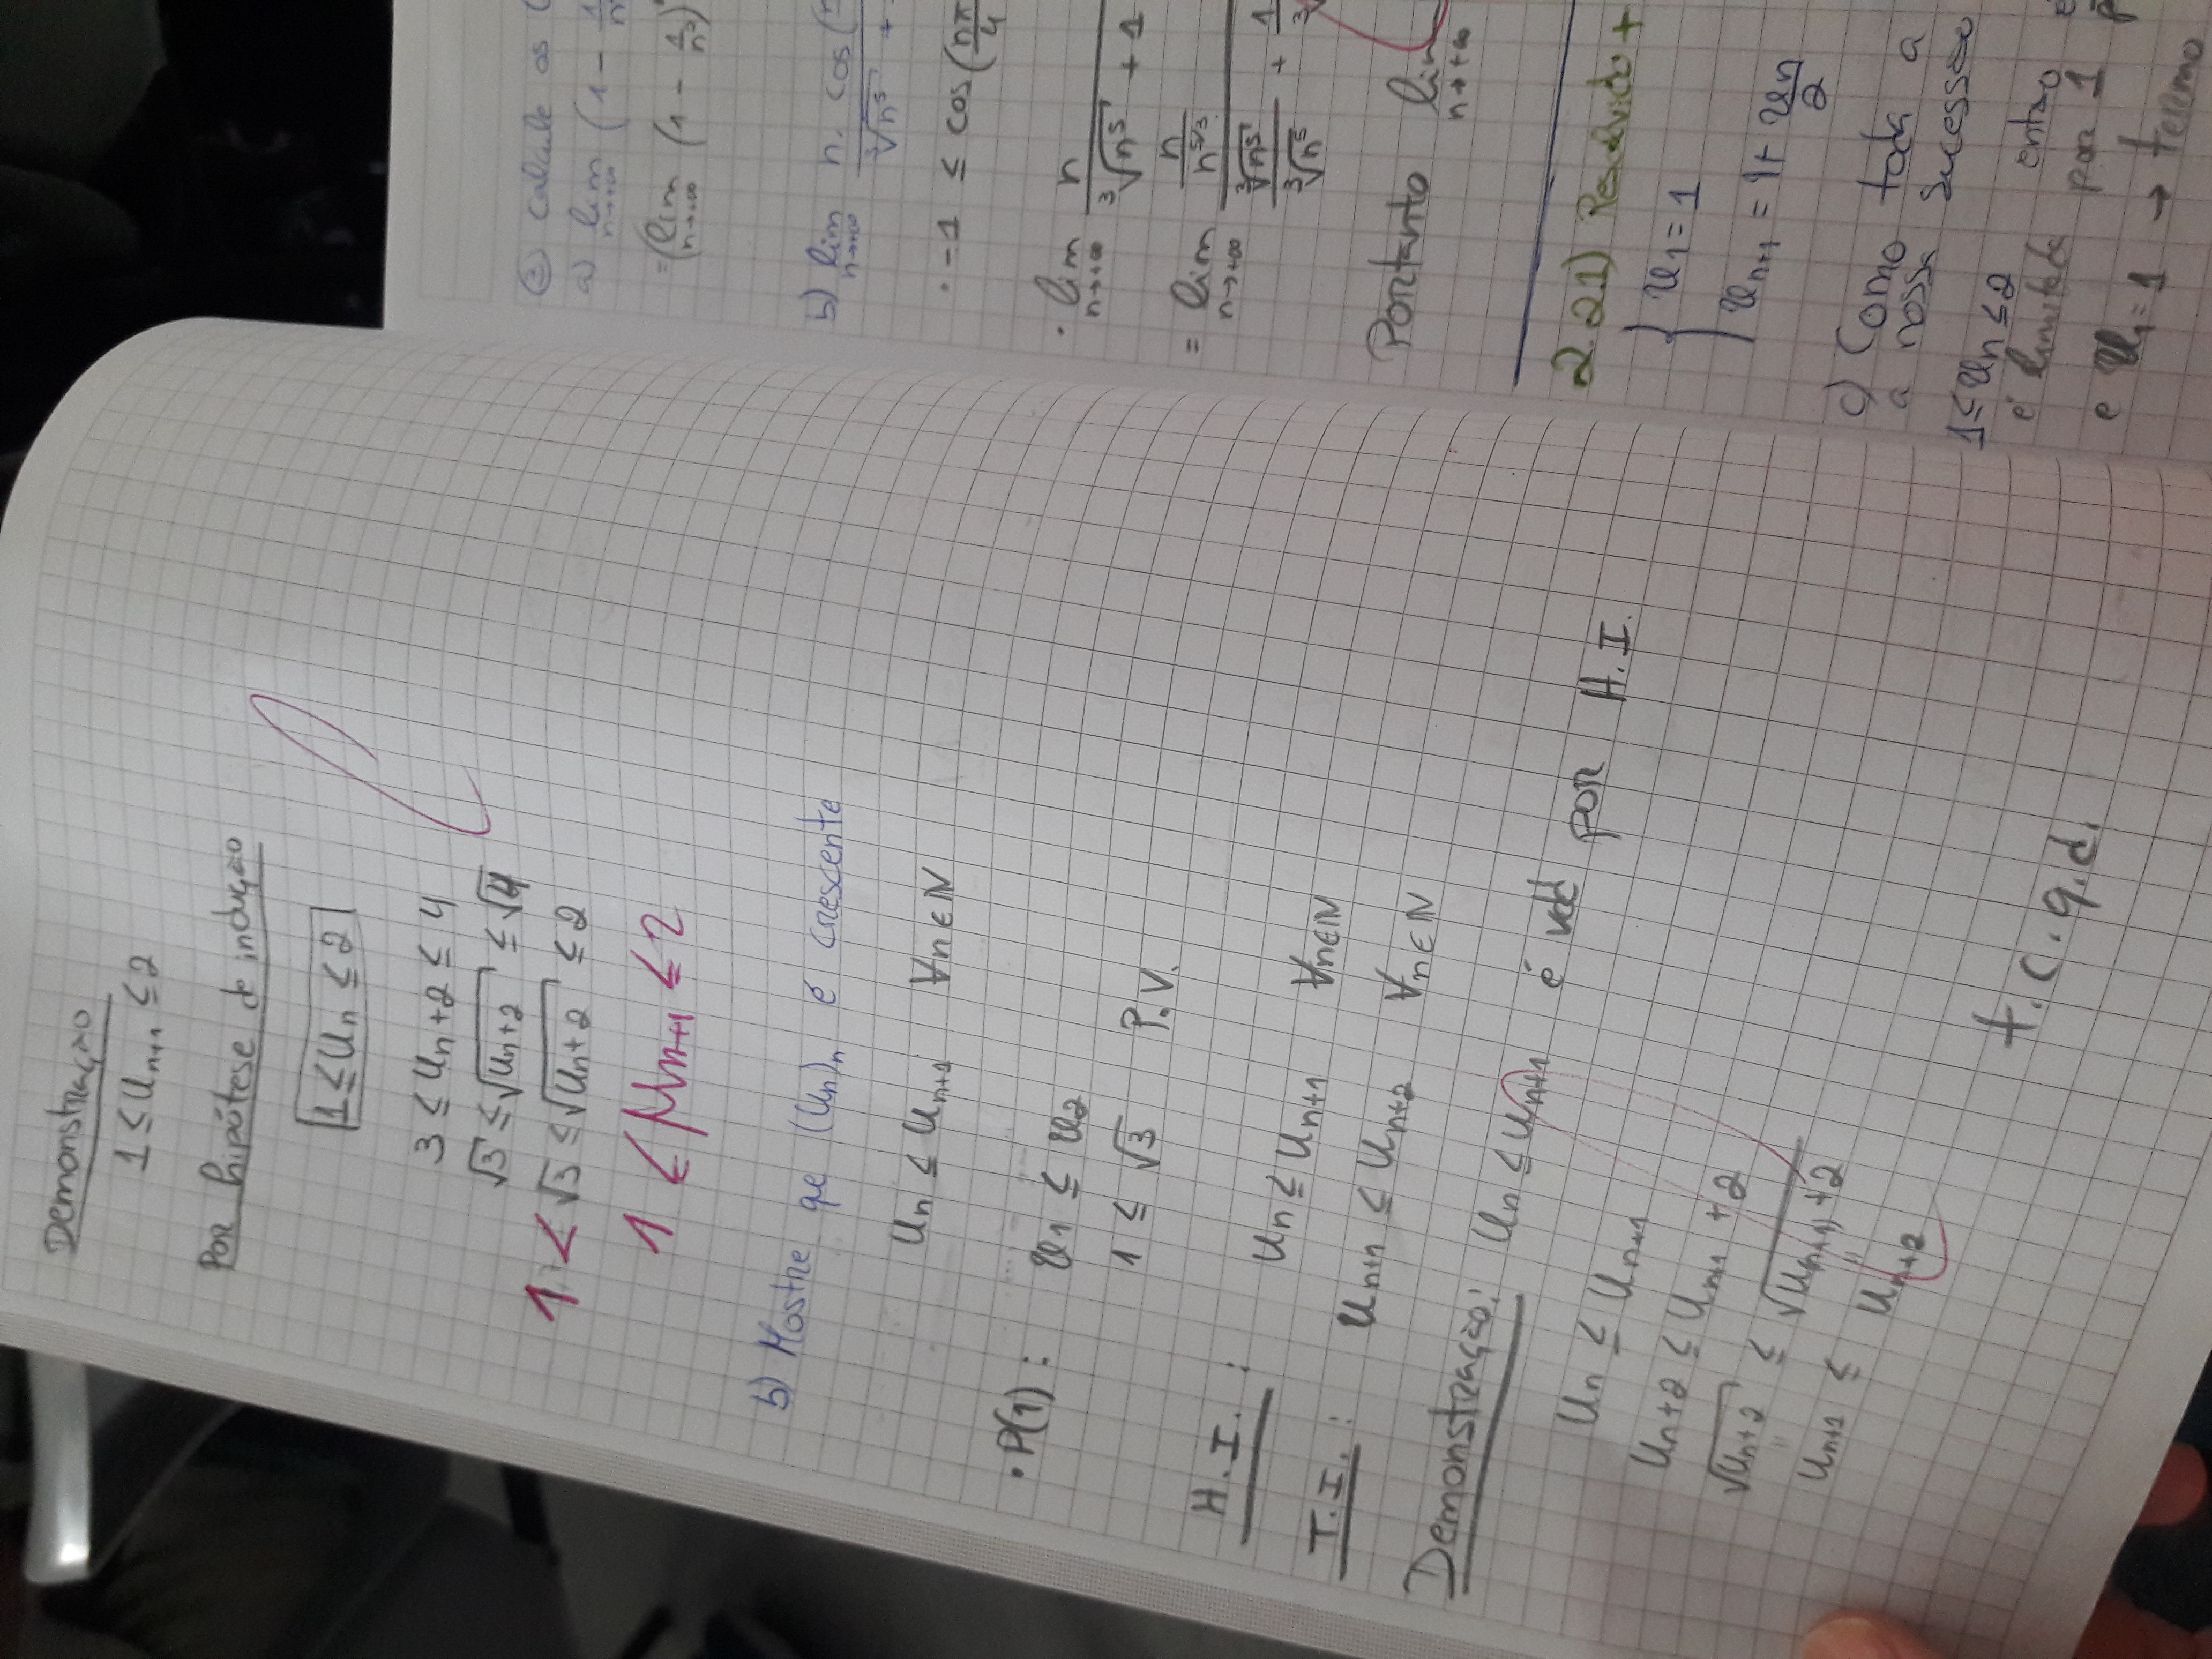 Demonstração
1 ≤ Un+1 ≤ 2
Por hipótese de indução
1 ≤ Un ≤ 2
3 ≤ Un + 2 ≤ 4
√3 ≤ √(Un+2) ≤ √4
1 < √3 ≤ √(Un+2) ≤ 2
1 ≤ μn+1 ≤ 2
b) Mostre que (Un)n é crescente
Un ≤ Un+1 ∀n∈N
• P(1): U1 ≤ U2
1 ≤ √3 P.V.
H.I.: Un ≤ Un+1 ∀n∈N
T.I.: Un+1 ≤ Un+2 ∀n∈N
Demonstração: Un ≤ Un+1 é vdd por H.I.
Un ≤ Un+1
Un+2 ≤ Un+1 + 2
√(Un+2) ≤ √(Un+1) + 2
Un+1 ≤ Un+2
t.c.q.d.
② Calcule os
a) lim n→+∞ (1 -
= (lim n→+∞ (1 - 1/n²)
b) lim n→+∞ n. cos(
• -1 ≤ cos(nπ/4
• lim n→+∞ n / ³√n⁵ + 1
= lim n→+∞ n/n^5/3 / ³√n⁵/³√n⁵ +
Portanto lim n→+∞
2.2.1) Resolvido +
U1 = 1
Un+1 = 1 + Un/2
c) Como toda a
a nossa sucessão
1 ≤ Un ≤ 2 então
é limitada por 1
e U1 = 1 → termo